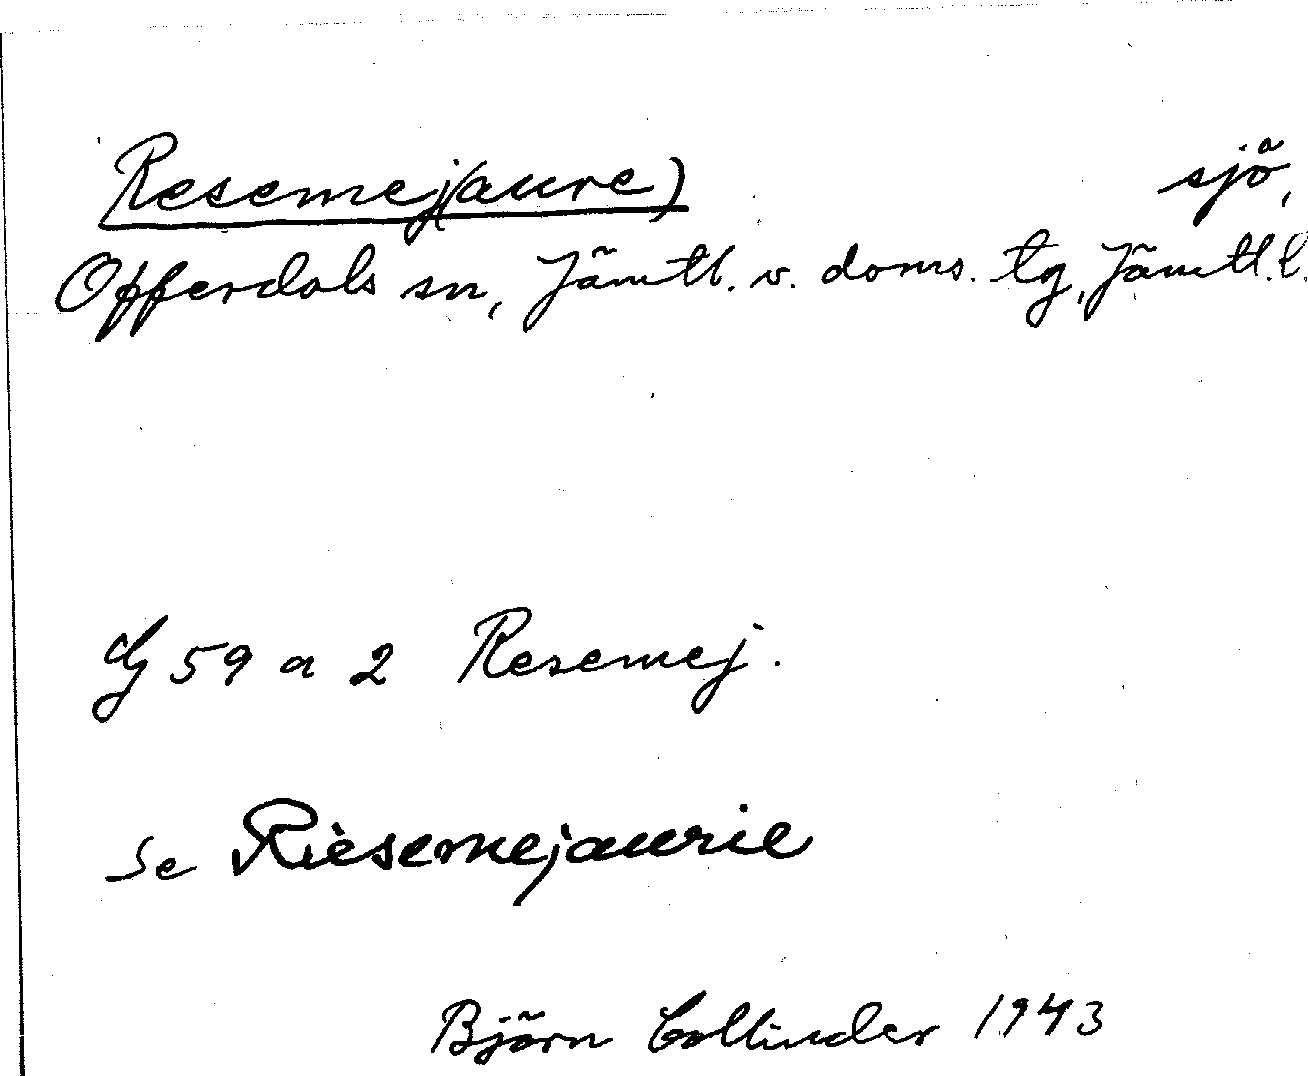 Resemej(aure) sjö,
Offerdals sn, Jämtl. v. doms. tg, Jämtl. l.
Lg 59 a 2 Resemej.
Se Riesemejaurie
Björn Collinder 1943